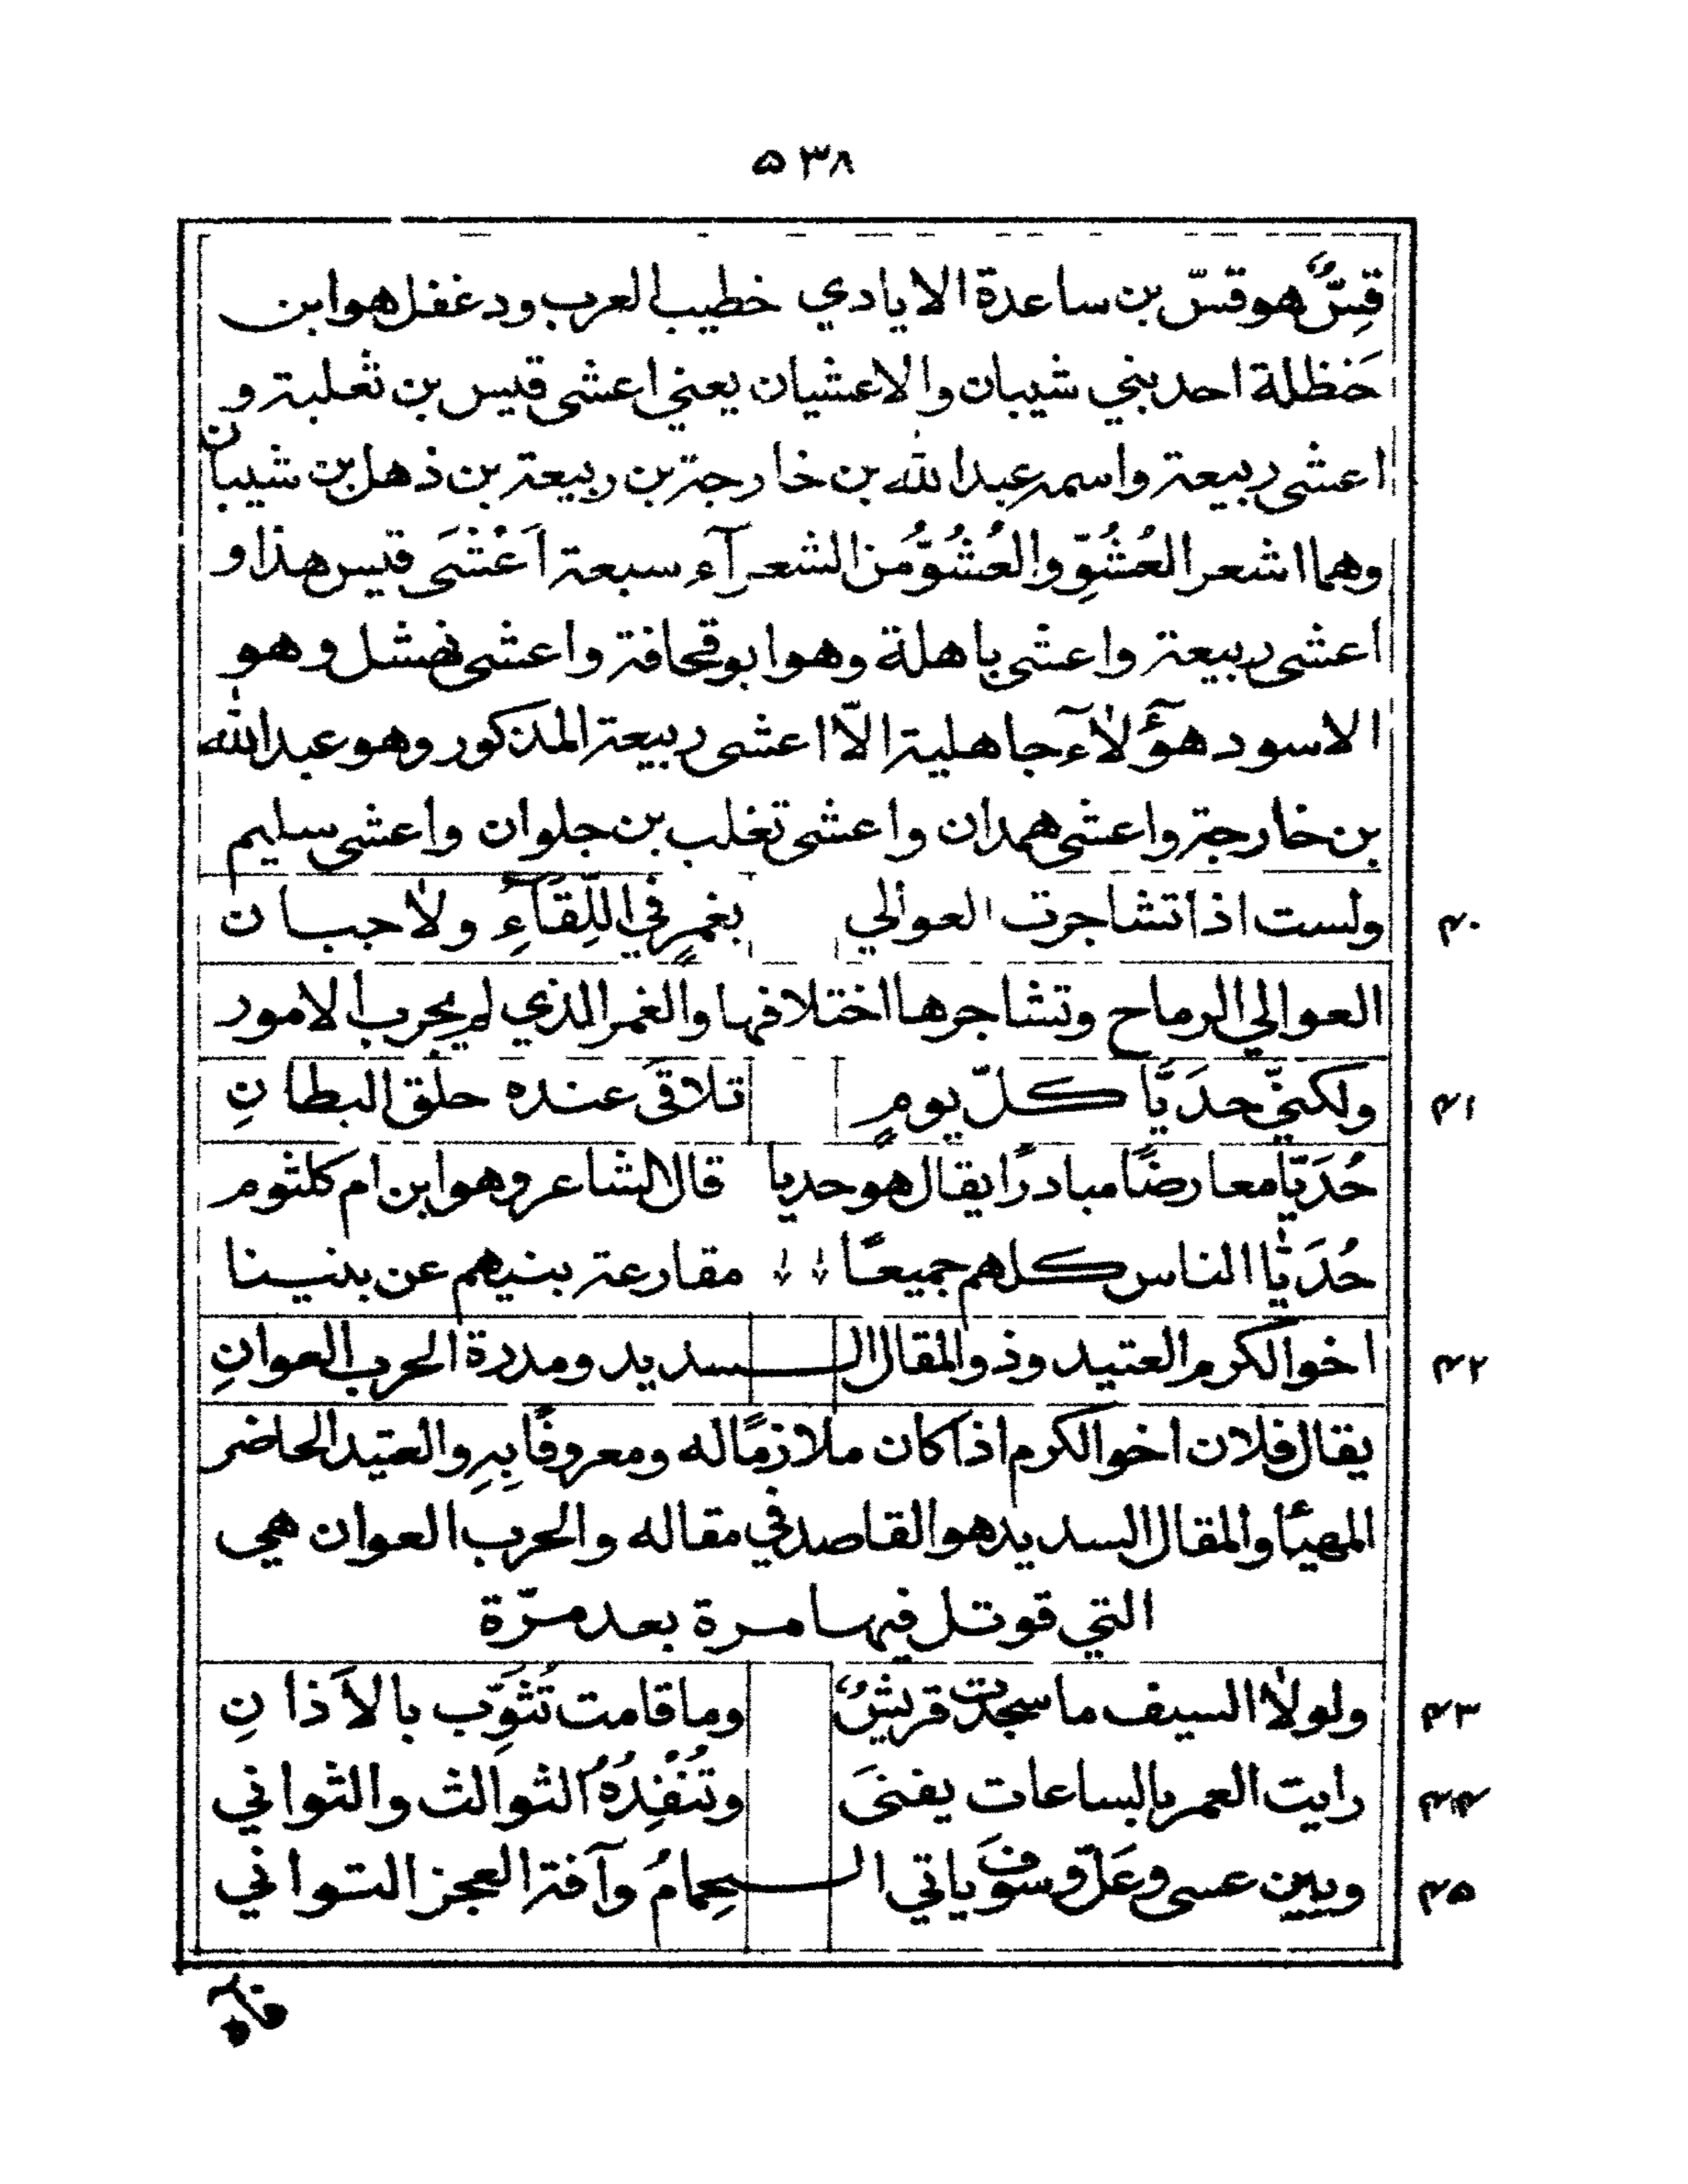 ۵۳۸
قِسٌّ هو قسّ بن ساعدة الايادي خطيب العرب ودغفل هو ابن
حَنظلة احد بني شيبان والاعشيان يعني اعشى قيس بن ثعلبة و
اعشى ربيعة واسمه عبد الله بن خارجة بن ربيعة بن ذهل بن شيبان
وهما اشعر العُشُوِّ والعُشُوُّ من الشعرآء سبعة اَعْشَى قيس هذا و
اعشى ربيعة واعشى باهلة وهو ابو قحافة واعشى نهشل وهو
الاسود هؤلآء جاهلية الّا اعشى ربيعة المذكور وهو عبد الله
بن خارجة واعشى همدان واعشى تغلب بن جلوان واعشى سليم
۴۰ ولست اذا تشاجرت العوالي بغمرٍ في اللِّقَآءِ ولا جبان
العوالي الرماح وتشاجرها اختلافها والغمر الذي لم يجرب الامور
۴۱ ولكنّي حدَيَّا كلّ يومٍ تلاقى عنده حلق البطانِ
حُدَيَّا معارضًا مبادرًا يقال هو حديا قال الشاعر وهو ابن ام كلثوم
حُدَيَّا الناس كلهم جميعًا مقارعة بنيهم عن بنينا
۴۲ اخو الكرم العتيد وذو المقال السديد ومدرة الحرب العوانِ
يقال فلان اخو الكرم اذا كان ملازمًا له ومعروفًا بِهِ والعتيد الحاضر
المهيأ والمقال السديد هو القاصد في مقاله والحرب العوان هي
التي قوتل فيها مرة بعد مرّة
۴۳ ولولا السيف ما سجدت قريشٌ وما قامت تُثَوِّب بالآذانِ
۴۴ رايت العمر بالساعات يفنى وتُنْفِدُهُ الثوالث والثواني
۴۵ وبين عسى وعَلّ وسوف ياتي الحِمامُ وآفة العجز التواني